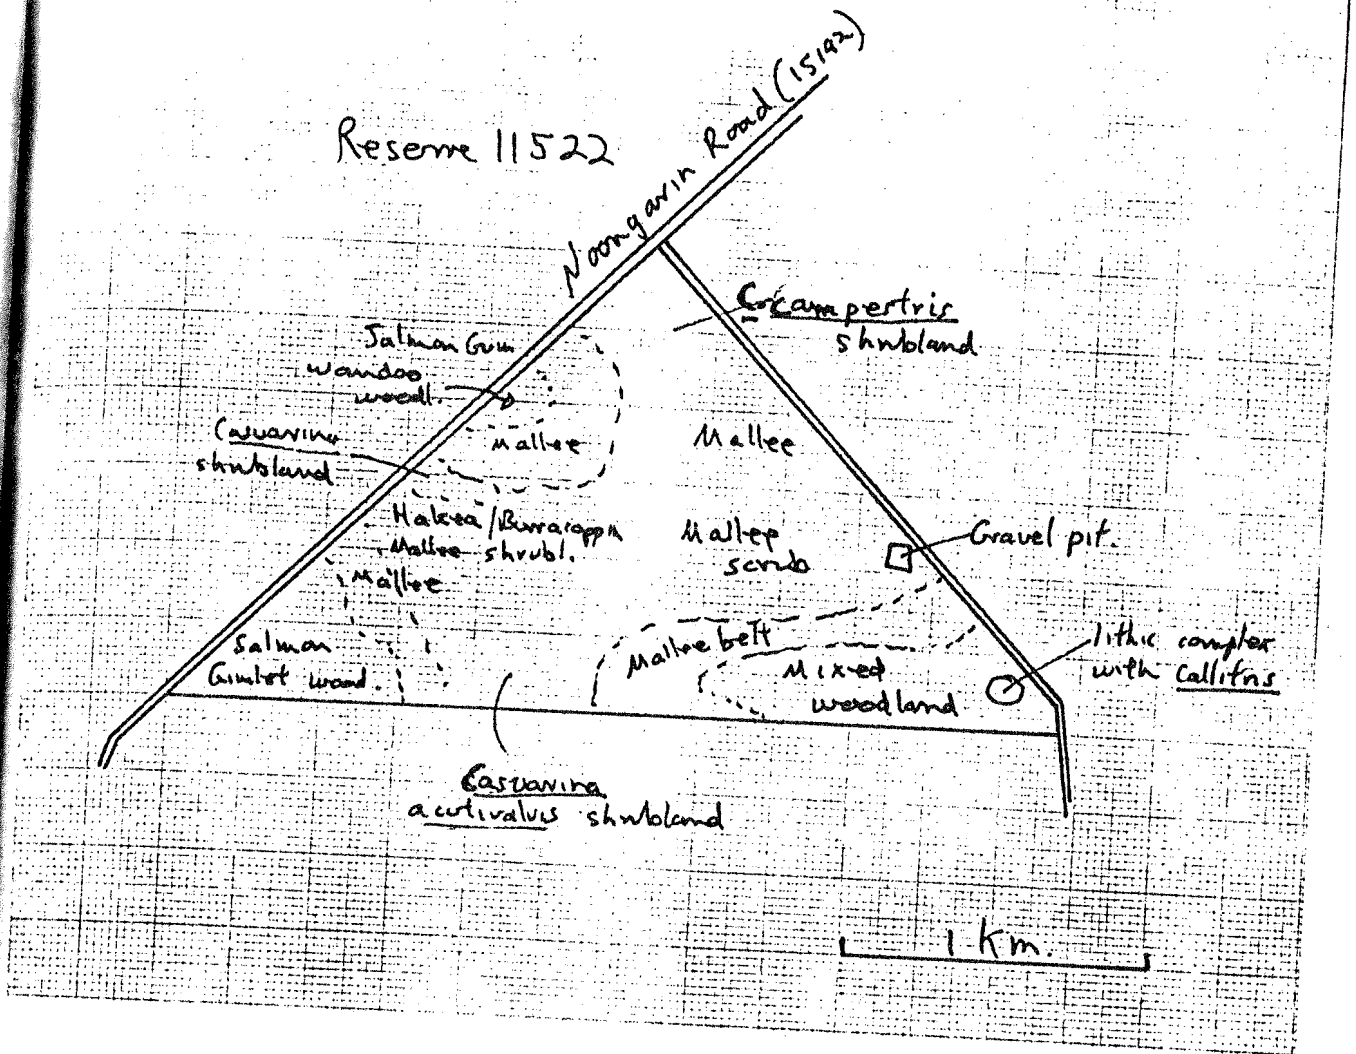 Noongarin Road (15192)
Reserve 11522
C. campestris
shrubland
Salmon Gum
wandoo
woodl.
Casuarina
shrubland
Mallee
Mallee
Hakea / Burracoppin
Mallee shrubl.
Mallee
Mallee
scrub
Gravel pit.
Salmon
Gimlet wood.
Mallee belt
Mixed
woodland
lithic complex
with Callitris
Casuarina
acutivalvis shrubland
1 Km.